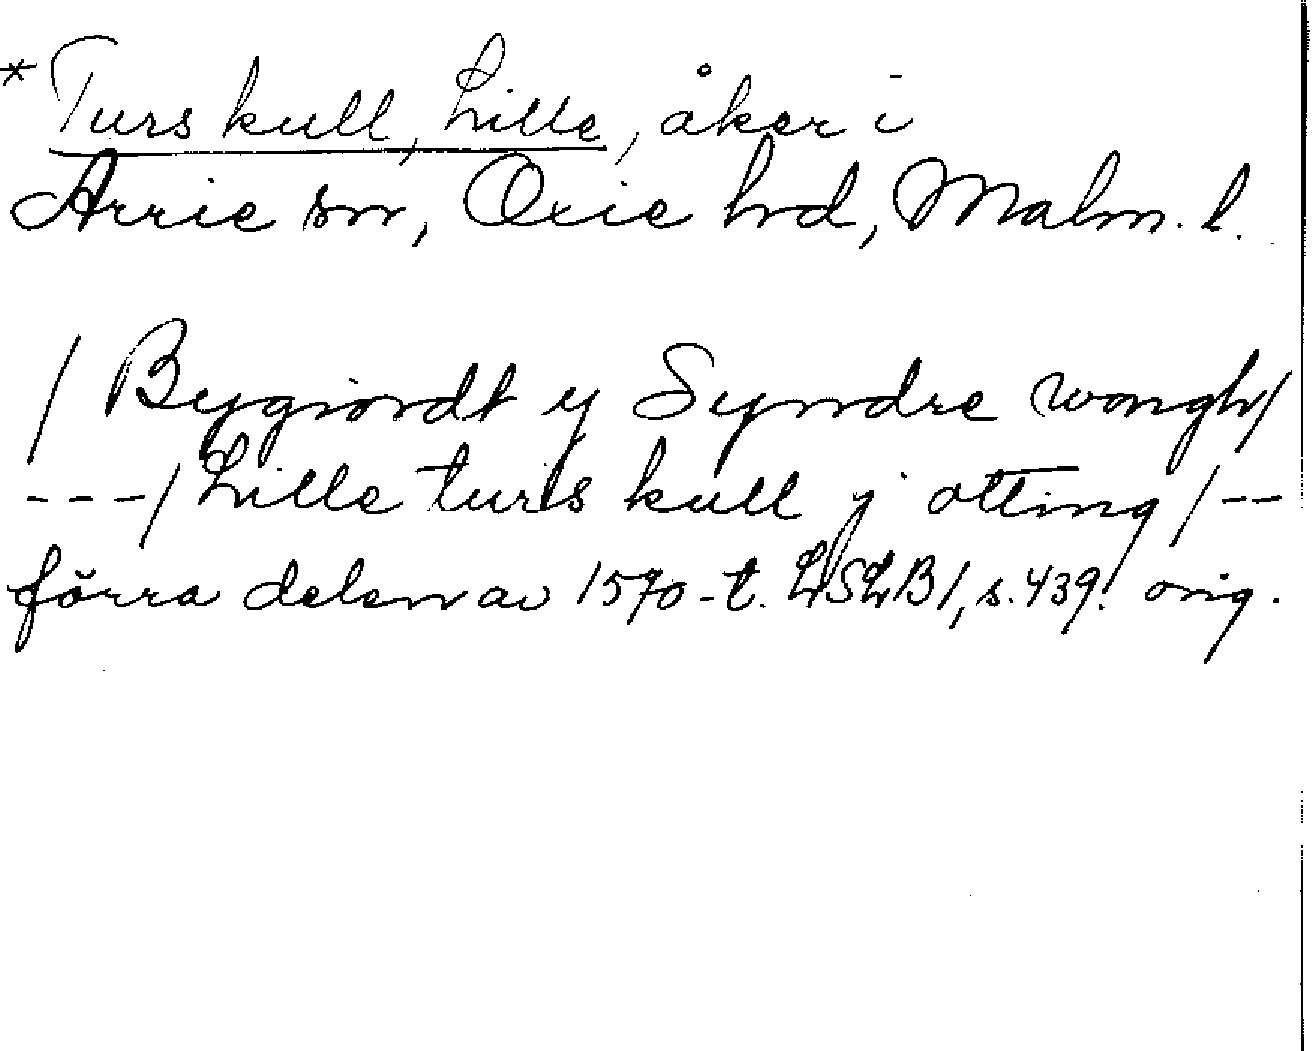 * Turs kull, Lille, åker i
Arrie sn, Oxie hrd, Malm. l.
/ Bygiordt y Syndre wongh/
---/ Lille turs kull j otting /--
förra delen av 1570-t. LSLB1, s. 439. orig.